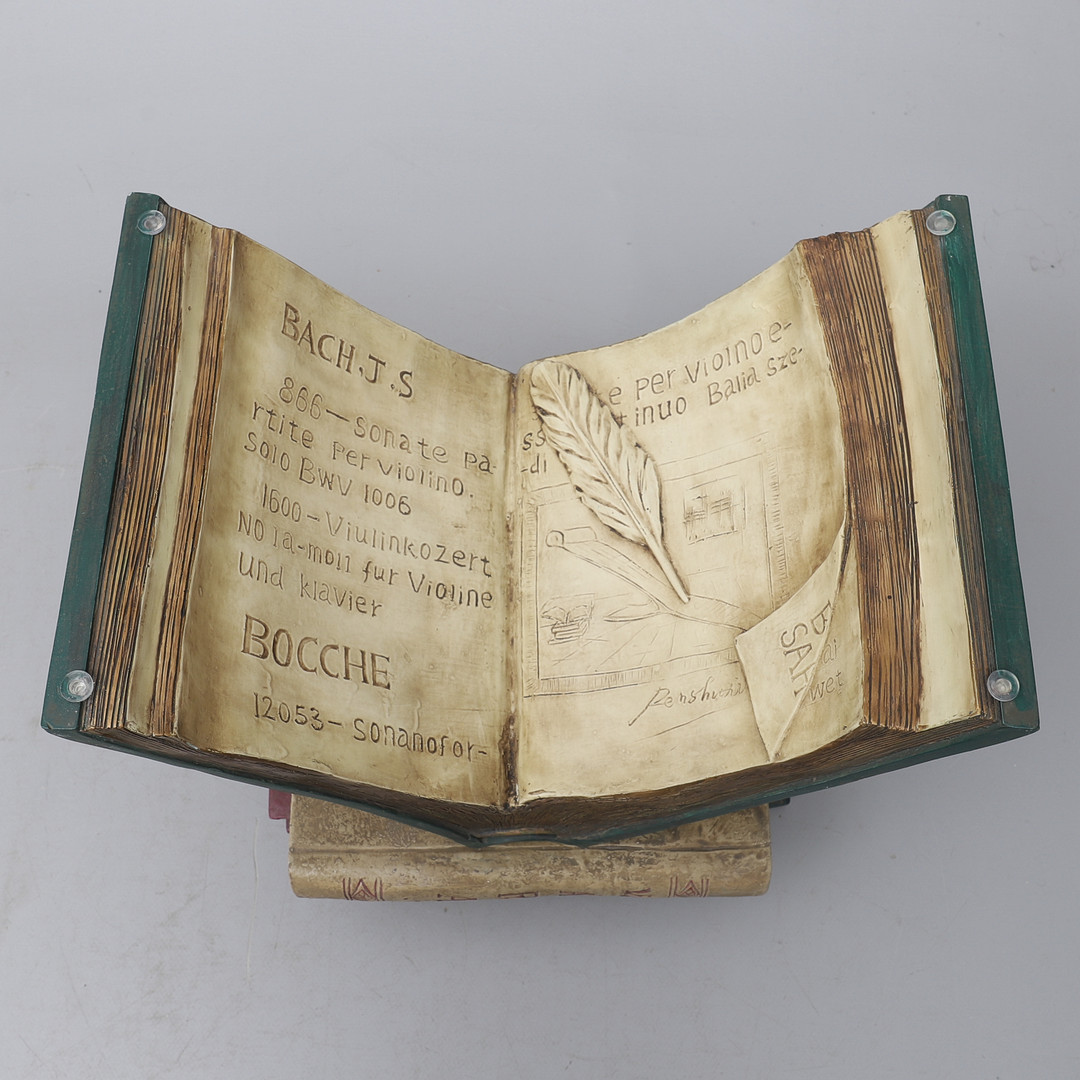 BACH.J.S
866-sonate pa-
rtite per violino.
Solo BWV 1006
1600-Viulinkozert
No 1a-moll fur Violine
und klavier
BOCCHE
12053- sonanofor-
e per violno e-
ss tinuo Balid sze-
-di